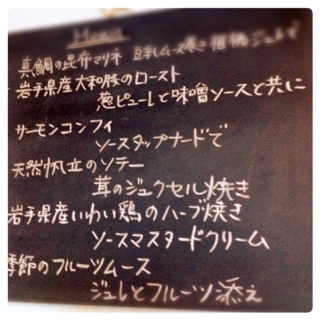 Menu
真鯛の昆布マリネ 豆乳ムース巻き 柑橘ジュレで
岩手県産大和豚のロースト
葱ピューレと味噌ソースと共に
サーモンコンフィ
ソースタップナードで
天然帆立のソテー
茸のジュクセル焼き
岩手県産いわい鶏のハーブ焼き
ソースマスタードクリーム
季節のフルーツムース
ジュレとフルーツ添え